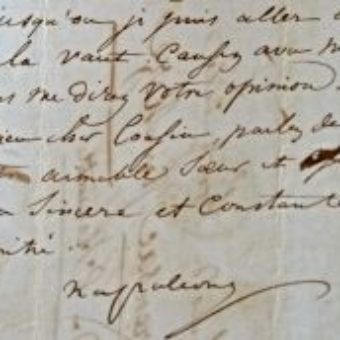 jusqu'où je puis aller
la vaut. Causez avec m
s me direz votre opinion
cher Cousin, parlez de
aimable Sœur et
Sincere et Constante
itié.
Napoleon